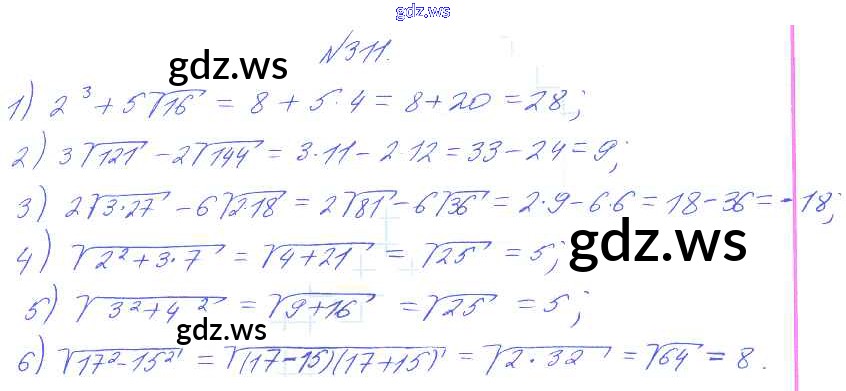 gdz.ws
№311.
gdz.ws
1) 2³ + 5√16 = 8 + 5·4 = 8 + 20 = 28;
2) 3√121 - 2√144 = 3·11 - 2·12 = 33 - 24 = 9;
3) 2√3·27 - 6√2·18 = 2√81 - 6√36 = 2·9 - 6·6 = 18 - 36 = -18;
gdz.ws
4) √2² + 3·7 = √4 + 21 = √25 = 5;
5) √3² + 4² = √9 + 16 = √25 = 5;
gdz.ws
6) √17² - 15² = √(17 - 15)(17 + 15) = √2·32 = √64 = 8.